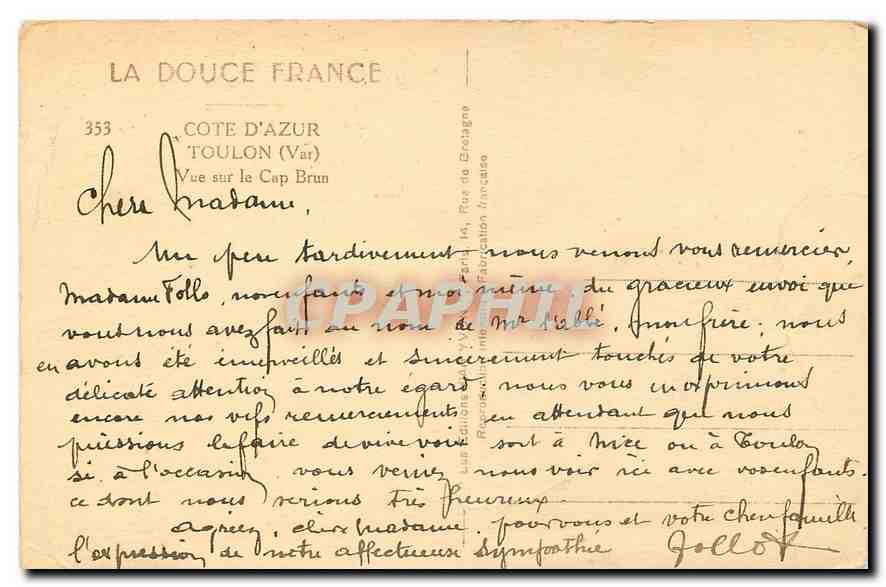 LA DOUCE FRANCE
353 COTE D'AZUR
TOULON (Var)
Vue sur le Cap Brun
Chere Madame,
Un peu tardivement nous venons vous remercier,
Madame Follo, nos enfants et moi même du gracieux envoi que
vous nous avez fait au nom de Mr l'abbé, mon frère, nous
en avons été émerveillés et sincerement touchés de votre
délicate attention à notre égard nous vous en exprimons
encore nos vifs remerciements en attendant que nous
puissions le faire de vive voix soit à Nice ou à Toulon
si à l'occasion vous veniez nous voir ici avec vos enfants.
ce dont nous serions très heureux.
Agréez, chere Madame, pour vous et votre chere famille
l'expression de notre affectueuse sympathie
Les Editions d'Art Paris, 14, Rue de Bretagne
Fabrication française
CPAPHIL